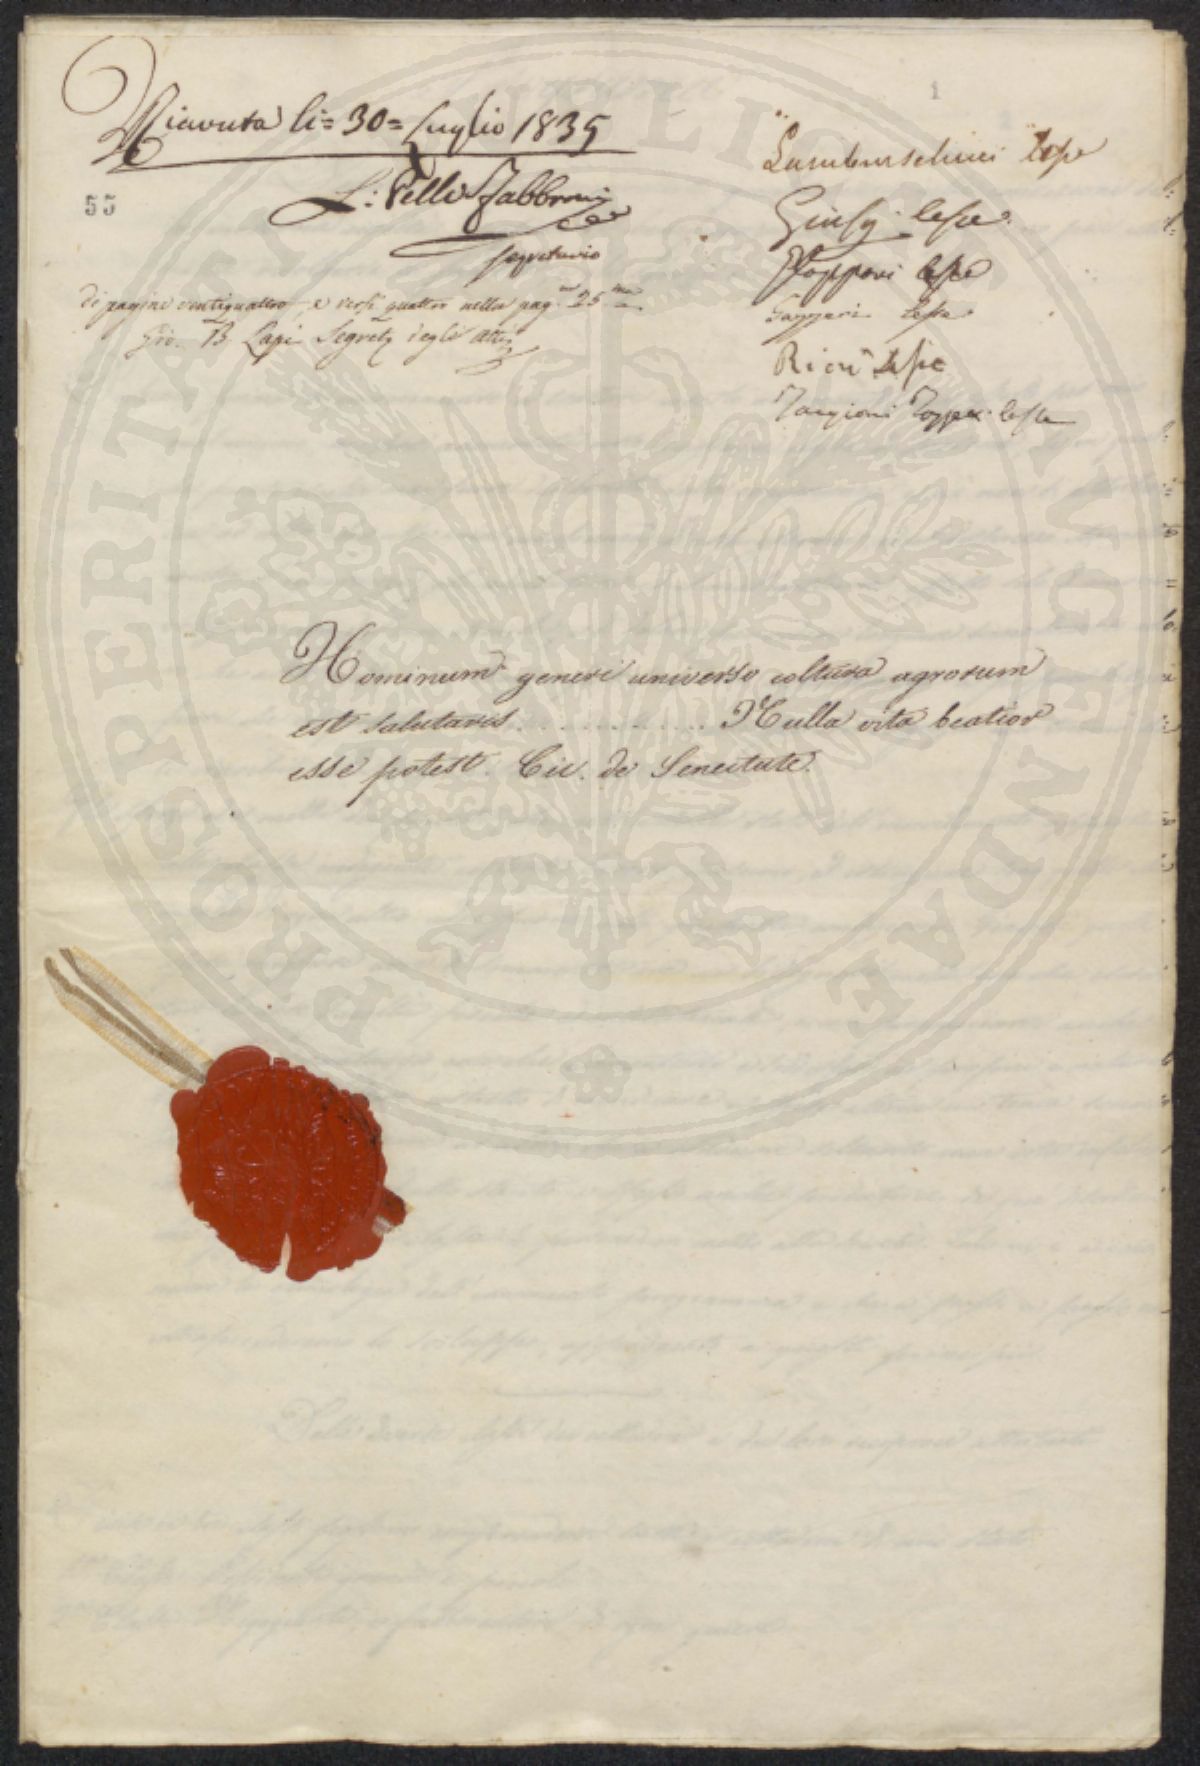 Ricevuta li = 30 = Luglio 1835
L: Pelli Fabbroni
segretario
55
di pagine ventiquattro, e versi quattro nella pag.ª 25ma
Gio. B. Lapi Segret. degli atti
1
Lambruschini lesse
Giusj lesse
lesse
Gazzeri lesse
Ricci lesse
Targioni Tozzetti lesse
Hominum generi universo coltura agrorum
est salutaris . . . . . . . . . . . . Nulla vita beatior
esse potest. Cic. de Senectute.
PROSPERITATI PUBLICAE AUGENDAE